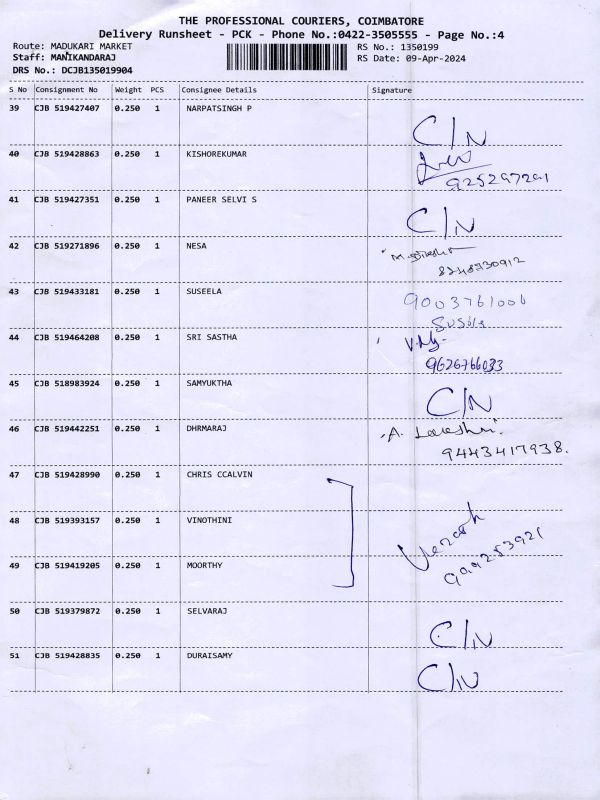 THE PROFESSIONAL COURIERS, COIMBATORE
Delivery Runsheet - PCK - Phone No.:0422-3505555 - Page No.:4
Route: MADUKARI MARKET RS No.: 1350199
Staff: MANIKANDARAJ RS Date: 09-Apr-2024
DRS No.: DCJB135019904
S No Consignment No Weight PCS Consignee Details Signature
39 CJB 519427407 0.250 1 NARPATSINGH P C/N
40 CJB 519428863 0.250 1 KISHOREKUMAR
9252972291
41 CJB 519427351 0.250 1 PANEER SELVI S C/N
42 CJB 519271896 0.250 1 NESA
43 CJB 519433181 0.250 1 SUSEELA 9003761006
Susila
44 CJB 519464208 0.250 1 SRI SASTHA
9626766033
45 CJB 518983924 0.250 1 SAMYUKTHA C/N
46 CJB 519442251 0.250 1 DHRMARAJ A.
9443417938.
47 CJB 519428990 0.250 1 CHRIS CCALVIN
48 CJB 519393157 0.250 1 VINOTHINI
49 CJB 519419205 0.250 1 MOORTHY
50 CJB 519379872 0.250 1 SELVARAJ C/N
51 CJB 519428835 0.250 1 DURAISAMY C/N